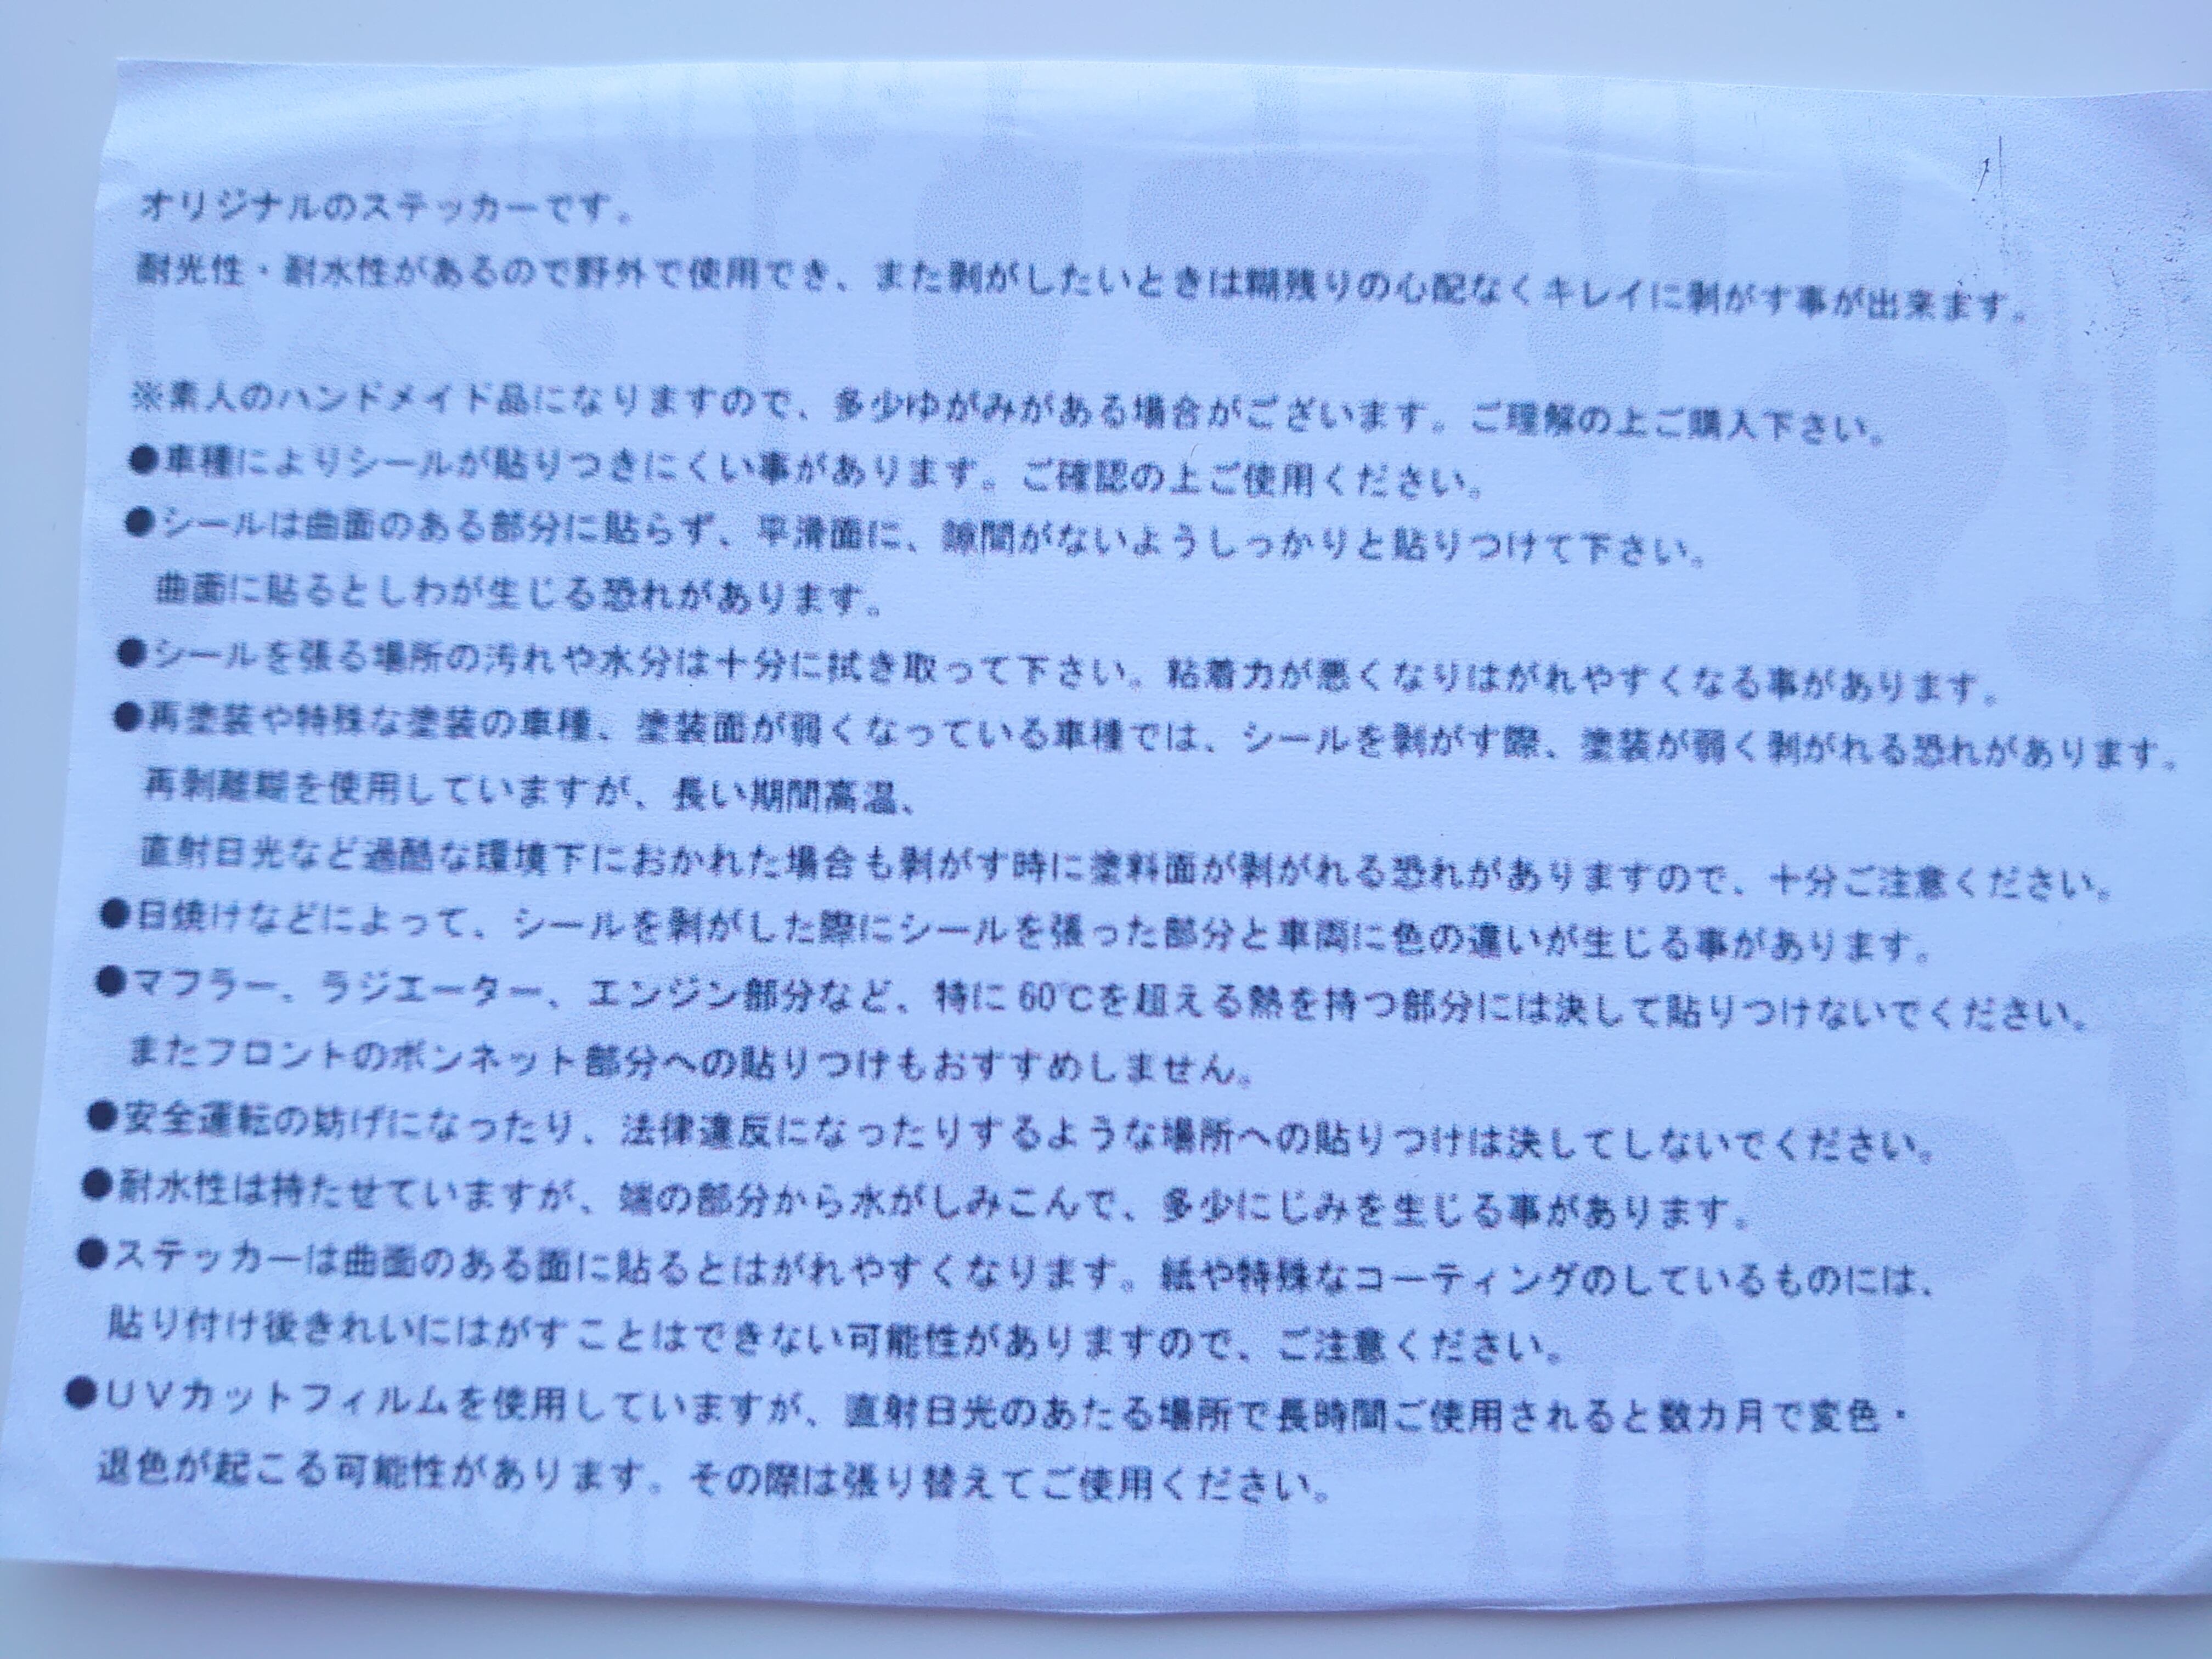 オリジナルのステッカーです。
耐光性・耐水性があるので野外で使用でき、また剥がしたいときは糊残りの心配なくキレイに剥がす事が出来ます。
※素人のハンドメイド品になりますので、多少ゆがみがある場合がございます。ご理解の上ご購入下さい。
●車種によりシールが貼りつきにくい事があります。ご確認の上ご使用ください。
●シールは曲面のある部分に貼らず、平滑面に、隙間がないようしっかりと貼りつけて下さい。
曲面に貼るとしわが生じる恐れがあります。
●シールを張る場所の汚れや水分は十分に拭き取って下さい。粘着力が悪くなりはがれやすくなる事があります。
●再塗装や特殊な塗装の車種、塗装面が弱くなっている車種では、シールを剥がす際、塗装が弱く剥がれる恐れがあります。
再剥離糊を使用していますが、長い期間高温、
直射日光など過酷な環境下におかれた場合も剥がす時に塗料面が剥がれる恐れがありますので、十分ご注意ください。
●日焼けなどによって、シールを剥がした際にシールを張った部分と車両に色の違いが生じる事があります。
●マフラー、ラジエーター、エンジン部分など、特に60℃を超える熱を持つ部分には決して貼りつけないでください。
またフロントのボンネット部分への貼りつけもおすすめしません。
●安全運転の妨げになったり、法律違反になったりするような場所への貼りつけは決してしないでください。
●耐水性は持たせていますが、端の部分から水がしみこんで、多少にじみを生じる事があります。
●ステッカーは曲面のある面に貼るとはがれやすくなります。紙や特殊なコーティングのしているものには、
貼り付け後きれいにはがすことはできない可能性がありますので、ご注意ください。
●ＵＶカットフィルムを使用していますが、直射日光のあたる場所で長時間ご使用されると数カ月で変色・
退色が起こる可能性があります。その際は張り替えてご使用ください。